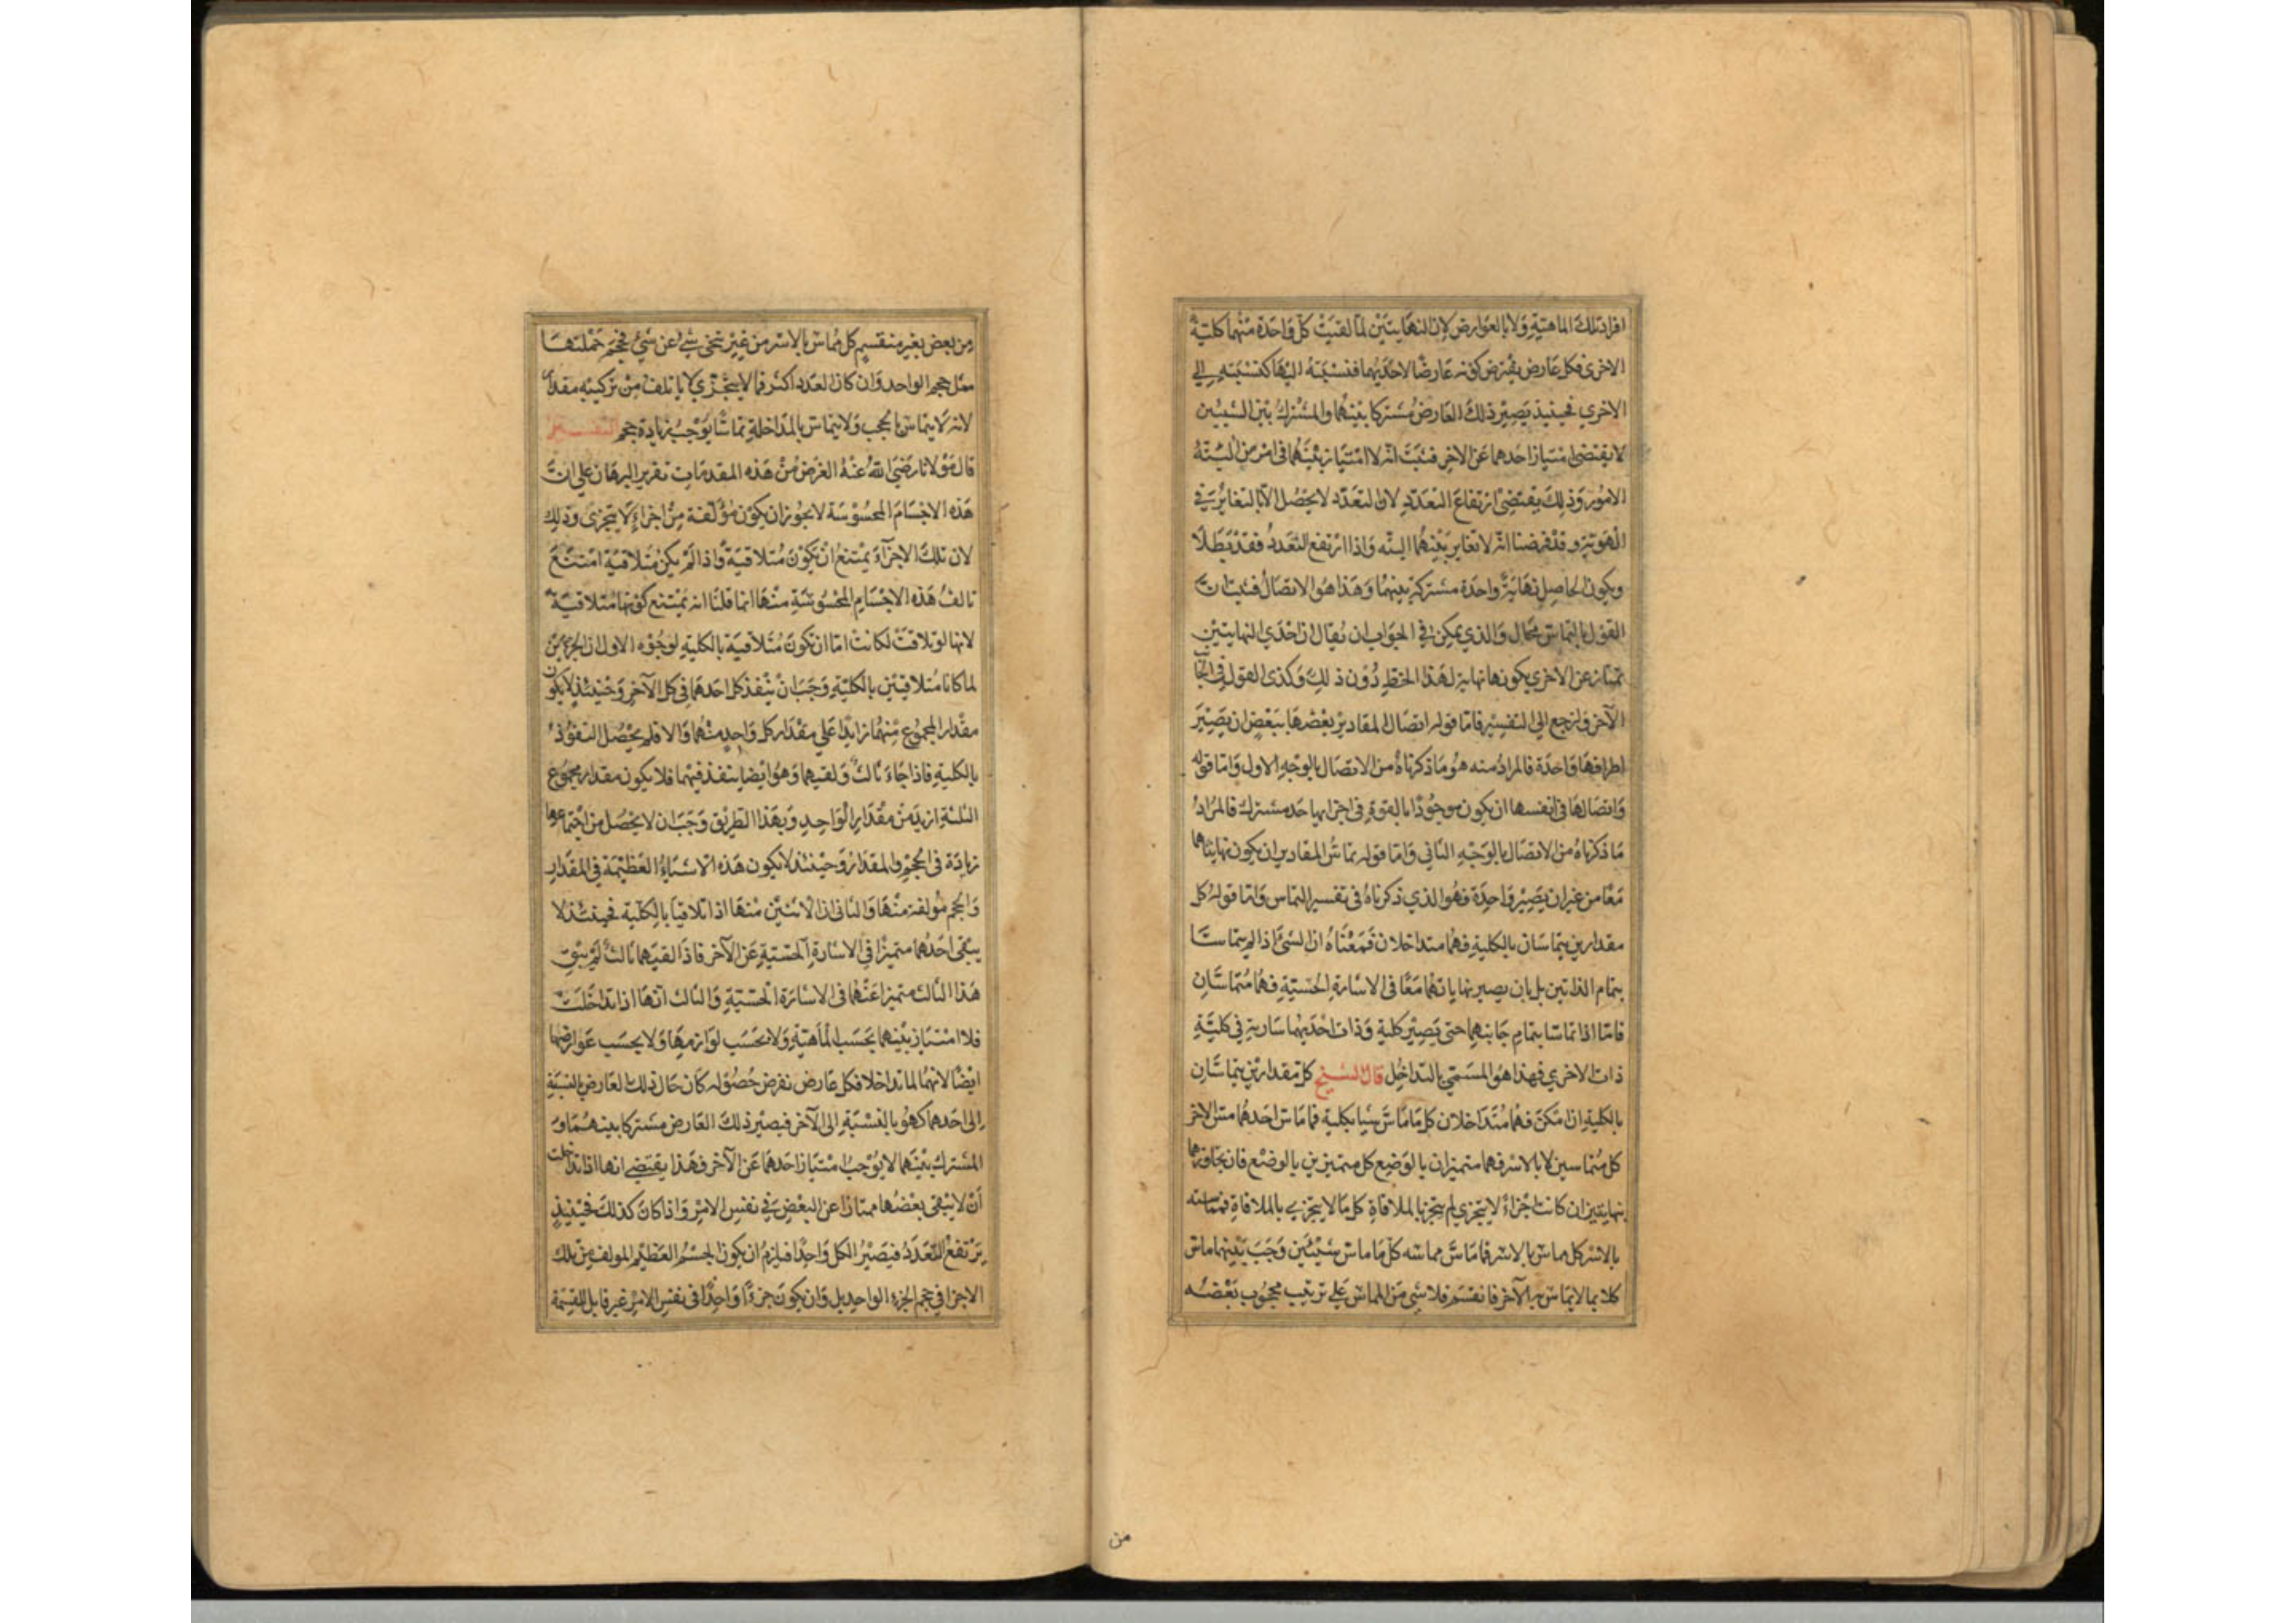 افراد تلك الماهية ولا بالعوارض لان النهايتين لما لقيت كل واحدة منهما كلية
الاخرى فكل عارض يفترض كونه عارضا لاحديهما فنسبته اليها كنسبته الي
الاخري فحينيذ يصير ذلك العارض مشتركا بينهما والمشترك بين الشيئين
لا يقتضى امتياز احدهما عن الاخر فثبت انه لا امتياز بينهما في امر من البتة
الامور وذلك يقتضى ارتفاع التعدد لان التعدد لا يحصل الا بالتغاير في
الهوية وقد فرضنا انه لا تغاير بينهما البتة واذا ارتفع التعدد فقد بطلا
ويكون الحاصل نهاية واحدة مشتركة بينهما وهذا هو الاتصال فثبت ان
القول بالتماس محال والذي يمكن في الجواب ان يقال ان احدي النهايتين
تمتاز عن الاخري بكونها نهاية لهذا الخط دون ذلك وكذى القول في الجانب
الآخر ولنرجع الى التفسير فاما قوله اتصال المقادير بعضها ببعض ان يصير
اطرافها واحدة فالمراد منه هو ما ذكرناه من الاتصال بالوجه الاول واما قوله
واتصالها في انفسها ان يكون موجودا بالقوة في اجزايها حد مشترك فالمراد
ما ذكرناه من الاتصال بالوجه الثاني واما قوله تماس المقادير ان يكون نهايتاهما
معا من غير ان يصير واحدة فهو الذي ذكرناه في تفسير التماس واما قوله كل
مقدارين يتماسان بالكلية فهما متداخلان فمعناه ان الشئ اذا لم يتماسا
بتمام الذاتين بل بان يصير نهاياتهما معا في الاشارة الحسية فهما متماسان
فاما اذا تماسا بتمام جانبهما حتى يصير كلية وذات احديهما سارية في كلية
ذات الاخري فهذا هو المسمي بالتداخل قال الشيخ كل مقدارين يتماسان
بالكلية ان امكن فهما متداخلان كل ما ماس شيا بكلية فما ماس احدهما مس الاخر
كل متماسين لا بالاسر فهما متميزان بالوضع كل متميزين بالوضع فان تجاورهما
بنهايتين ان كانت اجزاء لا يتجزى لم يتجز بالملاقاة كل ما لا يتجزي بالملاقاة فمماسته
بالاسر كل مماس بالاسر فما ماس مماسه كل ما ماس شيئين وجب بينهما ماس
كلا بما لا يماس به الآخر فانقسم فلا شى من المماس على ترتيب محجوب بعضه
من
من بعض بغير منقسم كل مماس بالاسر من غير تنحى شئ عن شئ فحجم جملتها
مثل حجم الواحد وان كان العدد اكثر فما لا يتجزي لا ياتلف من تركيبه مقدار
لانه لا يتماس بالحجب ولا يتماس بالمداخلة تماسا يوجب زيادة حجم التفسير
قال مولانا رضى الله عنه الغرض من هذه المقدمات تقرير البرهان علي ان
هذه الاجسام المحسوسة لا يجوز ان يكون مؤلفة من اجزاء لا يتجزى وذلك
لان تلك الاجزآء يمتنع ان يكون متلاقية واذا لم يكن متلاقية امتنع
تالف هذه الاجسام المحسوسة منها انما قلنا انه يمتنع كونها متلاقية
لانها لو تلاقت لكانت اما ان تكون متلاقية بالكلية لوجوه الاول ان الجزءين
لما كانا متلاقيين بالكلية وجب ان ينفذ كل احدهما فى كل الآخر وحينئذ لا يكون
مقدار المجموع منهما زايدا علي مقدار كل واحد منهما والا فلم يحصل النفوذ
بالكلية فاذا جاء ثالث ولقيهما وهو ايضا ينفذ فيهما فلا يكون مقدار مجموع
الثلثة ازيد من مقدار الواحد وبهذا الطريق وجب ان لا يحصل من اجتماعها
زيادة فى الحجم والمقدار وحينئذ لا يكون هذه الاشياء العظيمة في المقدار
والحجم مولفة منها والثانى ان الاثنين منها اذا تلاقيا بالكلية فحينئذ لا
يبقى احدهما متميزا في الاشارة الحسية عن الآخر فاذا لقيهما ثالث لم يبق
هذا الثالث متميزا عنهما فى الاشارة الحسية والثالث انها اذا تداخلت
فلا امتياز بينهما بحسب الماهية ولا بحسب لوازمها ولا بحسب عوارضها
ايضا لانهما لما تداخلا فكل عارض نفرض حصوله كان حال ذلك العارض بالنسبة
الى احدهما كهو بالنسبة الى الآخر فيصير ذلك العارض مشتركا بينهما و
المشترك بينهما لا يوجب امتياز احدهما عن الآخر فهذا يقتضي انها اذا تداخلت
أن لا يبقى بعضها ممتازا عن البعض في نفس الامر واذا كان كذلك فحينيذ
يرتفع التعدد فيصير الكل واحدا فيلزم ان يكون الجسم العظيم المولف من تلك
الاجزا في حجم الجزء الواحد بل وان يكون جزءا واحدا فى نفس الامر غير قابل للقسمة